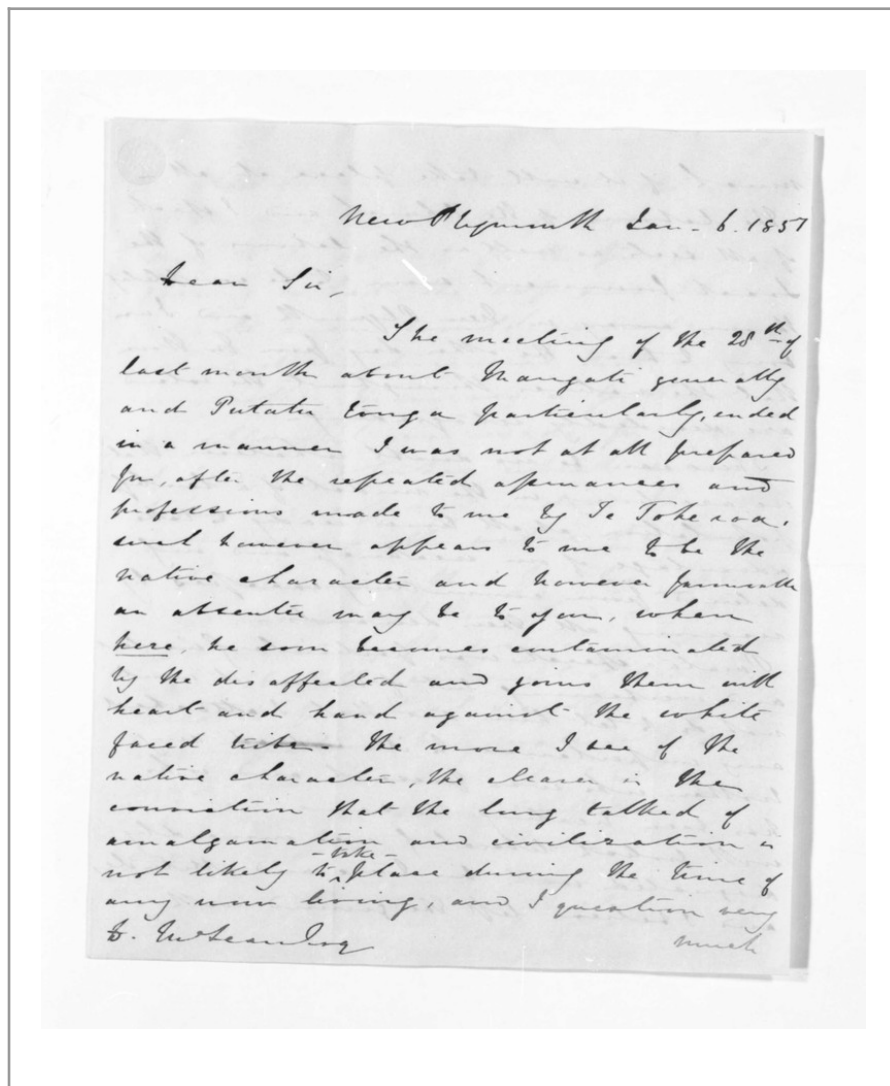 New Plymouth Jan- 6. 1851
Dear Sir,
The meeting of the 28th of
last month about Mangati generally
and Putatu tonga particularly, ended
in a manner I was not at all prepared
for, after the repeated assurances and
professions made to me by Te Tokeroa.
such however appears to me to be the
native character and however
an absentee may be to you, when
here, he soon becomes contaminated
by the disaffected and joins them with
heart and hand against the white
faced the more I see of the
native character, the clearer is the
conviction that the long talked of
amalgamation and civilization is
not likely to take place during the time of
any now living, and I question very
D. McLean Esq much